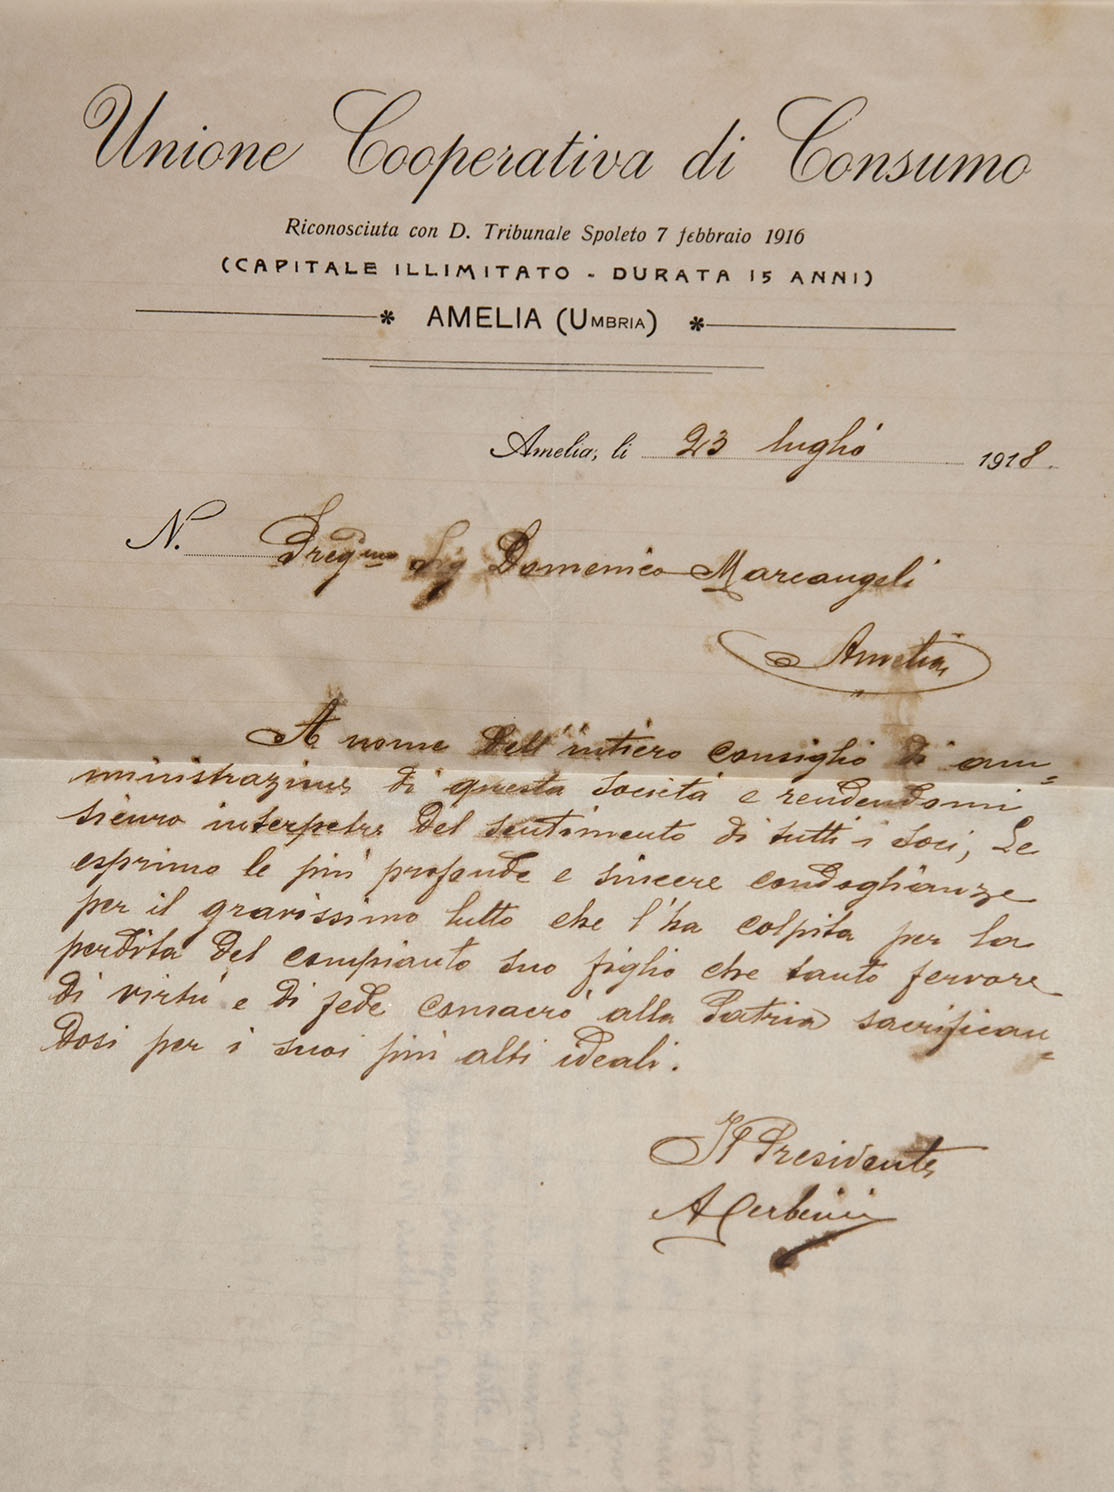 Unione Cooperativa di Consumo
Riconosciuta con D. Tribunale Spoleto 7 febbraio 1916
(CAPITALE ILLIMITATO - DURATA 15 ANNI)
* AMELIA (UMBRIA) *
Amelia, li 23 luglio 1918.
N. Pregmo Sig Domenico Marcangeli
Amelia
A nome dell'intiero consiglio di am=
ministrazione di questa società e rendendomi
sicuro interpetre del sentimento di tutti i soci, Le
esprimo le più profonde e sincere condoglianze
per il gravissimo lutto che l'ha colpita per la
perdita del compianto suo figlio che tanto fervore
di virtù e di fede consacrò alla Patria sacrifican=
dosi per i suoi più alti ideali.
Il Presidente